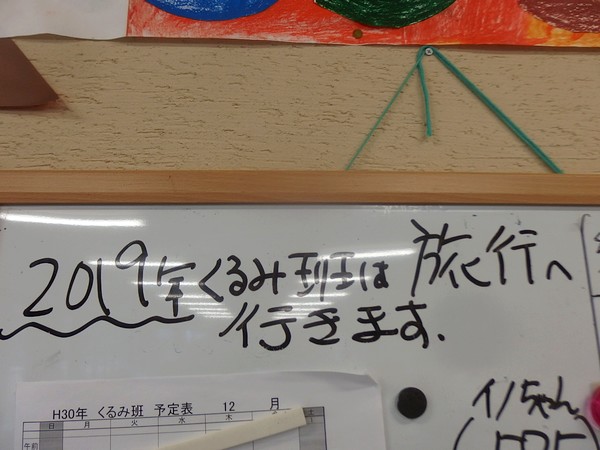 2019年くるみ班は旅行へ
行きます.
H30年 くるみ班 予定表 12 月
日 月 火 水 木 土
午前
イノちゃん